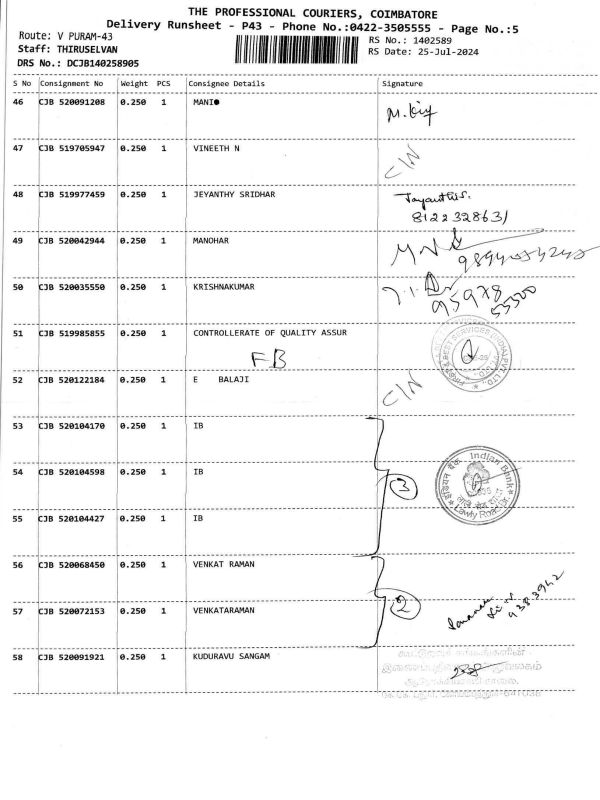 THE PROFESSIONAL COURIERS, COIMBATORE
Delivery Runsheet - P43 - Phone No.:0422-3505555 - Page No.:5
Route: V PURAM-43
RS No.: 1402589
Staff: THIRUSELVAN
RS Date: 25-Jul-2024
DRS No.: DCJB140258905
S No Consignment No Weight PCS Consignee Details Signature
46 CJB 520091208 0.250 1 MANI
47 CJB 519705947 0.250 1 VINEETH N C/N
48 CJB 519977459 0.250 1 JEYANTHY SRIDHAR
8122328631
49 CJB 520042944 0.250 1 MANOHAR
50 CJB 520035550 0.250 1 KRISHNAKUMAR
95978
55300
51 CJB 519985855 0.250 1 CONTROLLERATE OF QUALITY ASSUR
FB
52 CJB 520122184 0.250 1 E BALAJI C/N
53 CJB 520104170 0.250 1 IB
54 CJB 520104598 0.250 1 IB 3 इंडियन बैंक Indian Bank
Lawly Road Br.
55 CJB 520104427 0.250 1 IB
56 CJB 520068450 0.250 1 VENKAT RAMAN
2
57 CJB 520072153 0.250 1 VENKATARAMAN
58 CJB 520091921 0.250 1 KUDURAVU SANGAM